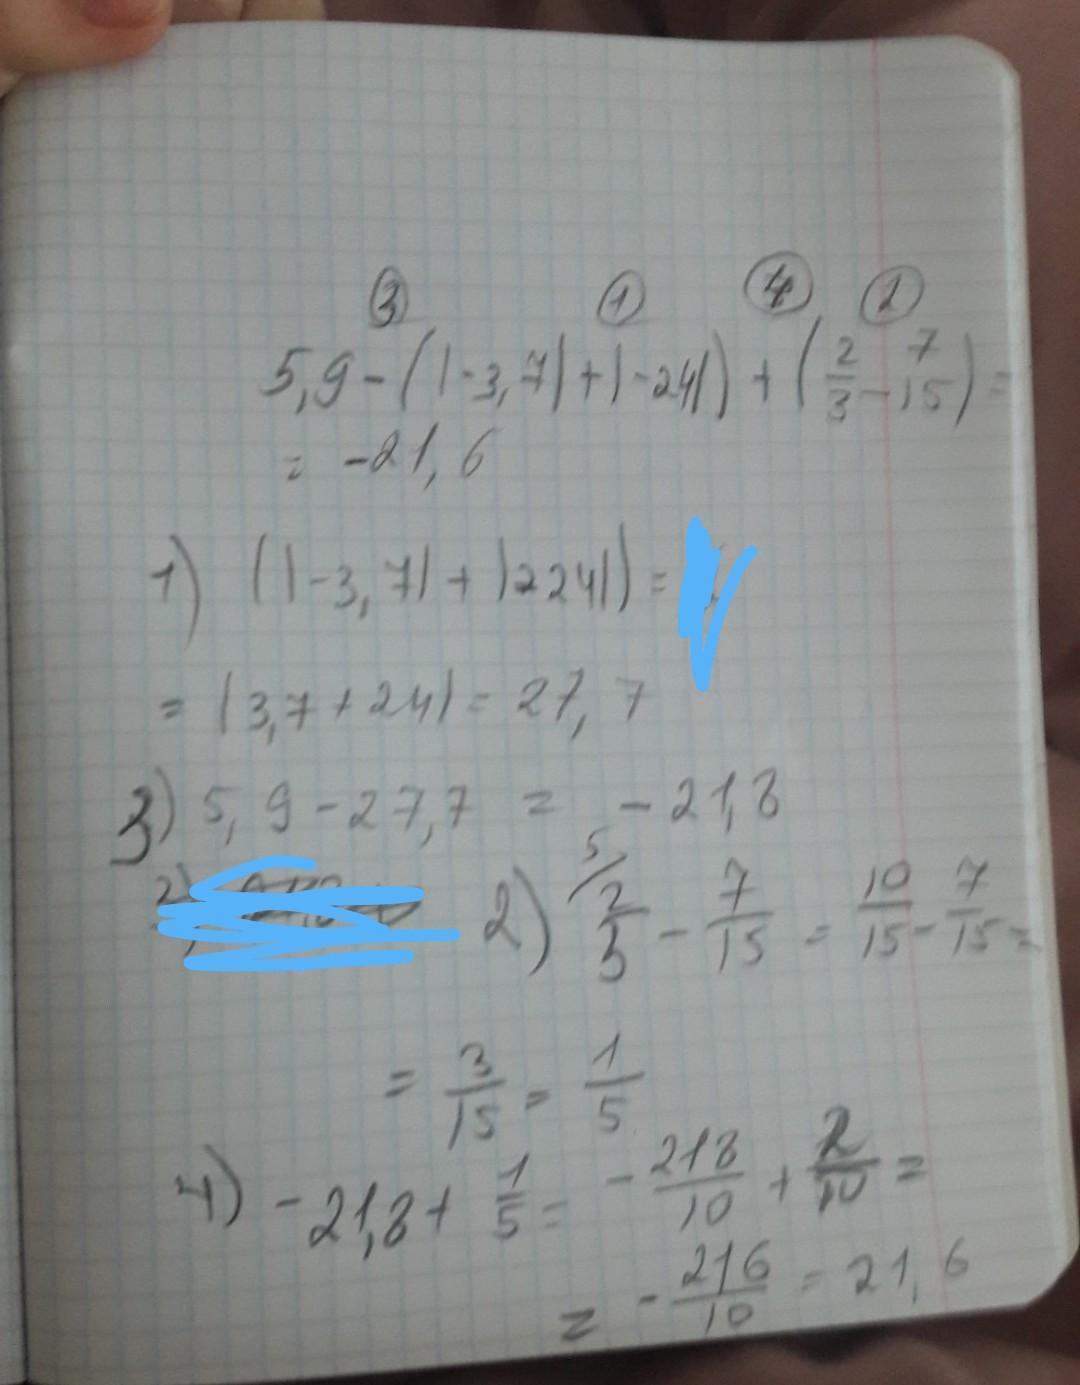 ③ ① ④ ②
5,9-(|-3,7|+|-24|)+(2/3-7/15)=
= -21,6
1) (|-3,7|+|224|)=
= |3,7+24|= 27,7
3) 5,9-27,7 = -21,8
2) 5/ 2/3 - 7/15 = 10/15 - 7/15 =
= 3/15 = 1/5
4) -21,8+ 1/5 = - 218/10 + 2/10 =
= - 216/10 = 21,6